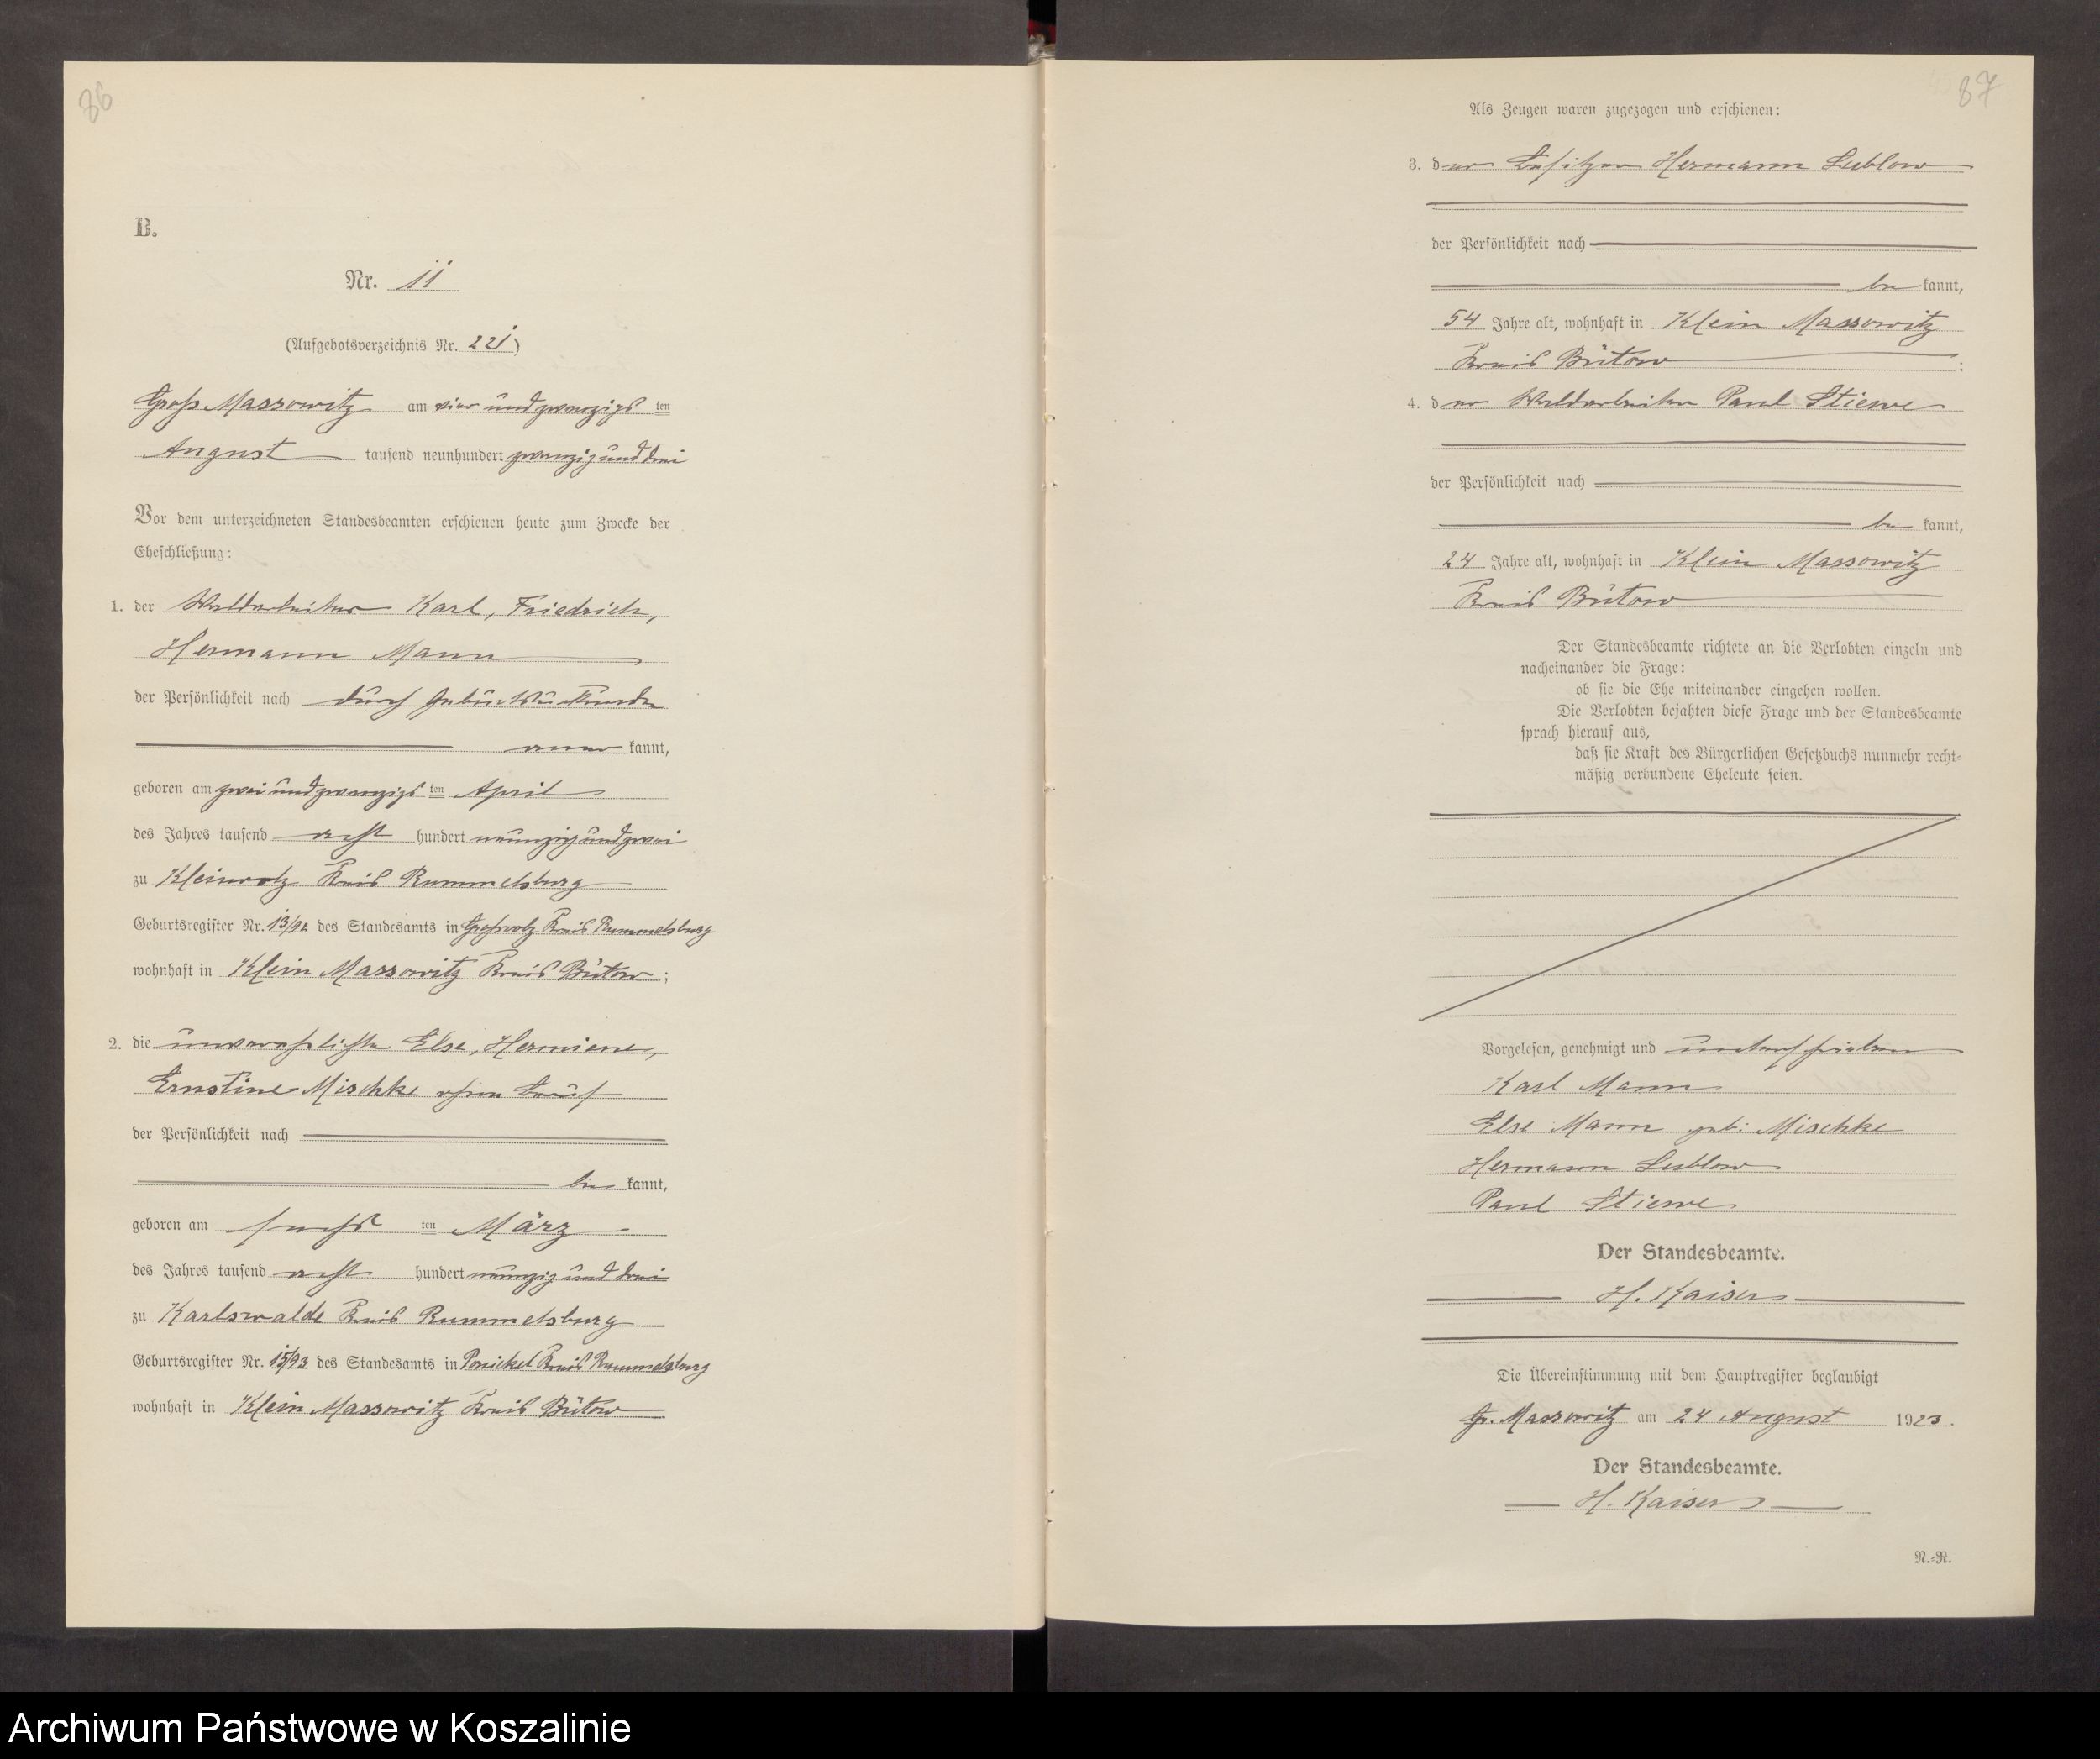 86
B.
Nr. 11
(Aufgebotsverzeichnis Nr. 221)
Groß Massowitz am vier und zwanzigs ten
August tausend neunhundert zwanzig und drei
Vor dem unterzeichneten Standesbeamten erschienen heute zum Zwecke der
Eheschließung:
1. der Waldarbeiter Karl, Friedrich,
Hermann Mann
der Persönlichkeit nach durch Geburtsurkunde
aner kannt,
geboren am zwei und zwanzigs ten April
des Jahres tausend acht hundert neunzig und zwei
zu Kleinvolz Kreis Rummelsburg
Geburtsregister Nr. 13/92 des Standesamts in Großvolz Kreis Rummelsburg
wohnhaft in Klein Massowitz Kreis Bütow;
2. die unverehelichte Else, Hermiene,
Ernstine Mischke ohne Beruf
der Persönlichkeit nach
be kannt,
geboren am sechs ten März
des Jahres tausend acht hundert neunzig und drei
zu Karlswalde Kreis Rummelsburg
Geburtsregister Nr. 15/93 des Standesamts in Ponickel Kreis Rummelsburg
wohnhaft in Klein Massowitz Kreis Bütow
87
Als Zeugen waren zugezogen und erschienen:
3. der Besitzer Hermann Lublow
der Persönlichkeit nach
be kannt,
54 Jahre alt, wohnhaft in Klein Massowitz
Kreis Bütow;
4. der Waldarbeiter Paul Stiewe
der Persönlichkeit nach
be kannt,
24 Jahre alt, wohnhaft in Klein Massowitz
Kreis Bütow
Der Standesbeamte richtete an die Verlobten einzeln und
nacheinander die Frage:
ob sie die Ehe miteinander eingehen wollen.
Die Verlobten bejahten diese Frage und der Standesbeamte
sprach hierauf aus,
daß sie Kraft des Bürgerlichen Gesetzbuchs nunmehr recht-
mäßig verbundene Eheleute seien.
Vorgelesen, genehmigt und unterschrieben
Karl Mann
Else Mann geb: Mischke
Hermann Lublow
Paul Stiewe
Der Standesbeamte.
H. Kaiser
Die Übereinstimmung mit dem Hauptregister beglaubigt
Gr. Massowitz am 24 August 1923.
Der Standesbeamte.
H. Kaiser
N.-R.
Archiwum Państwowe w Koszalinie